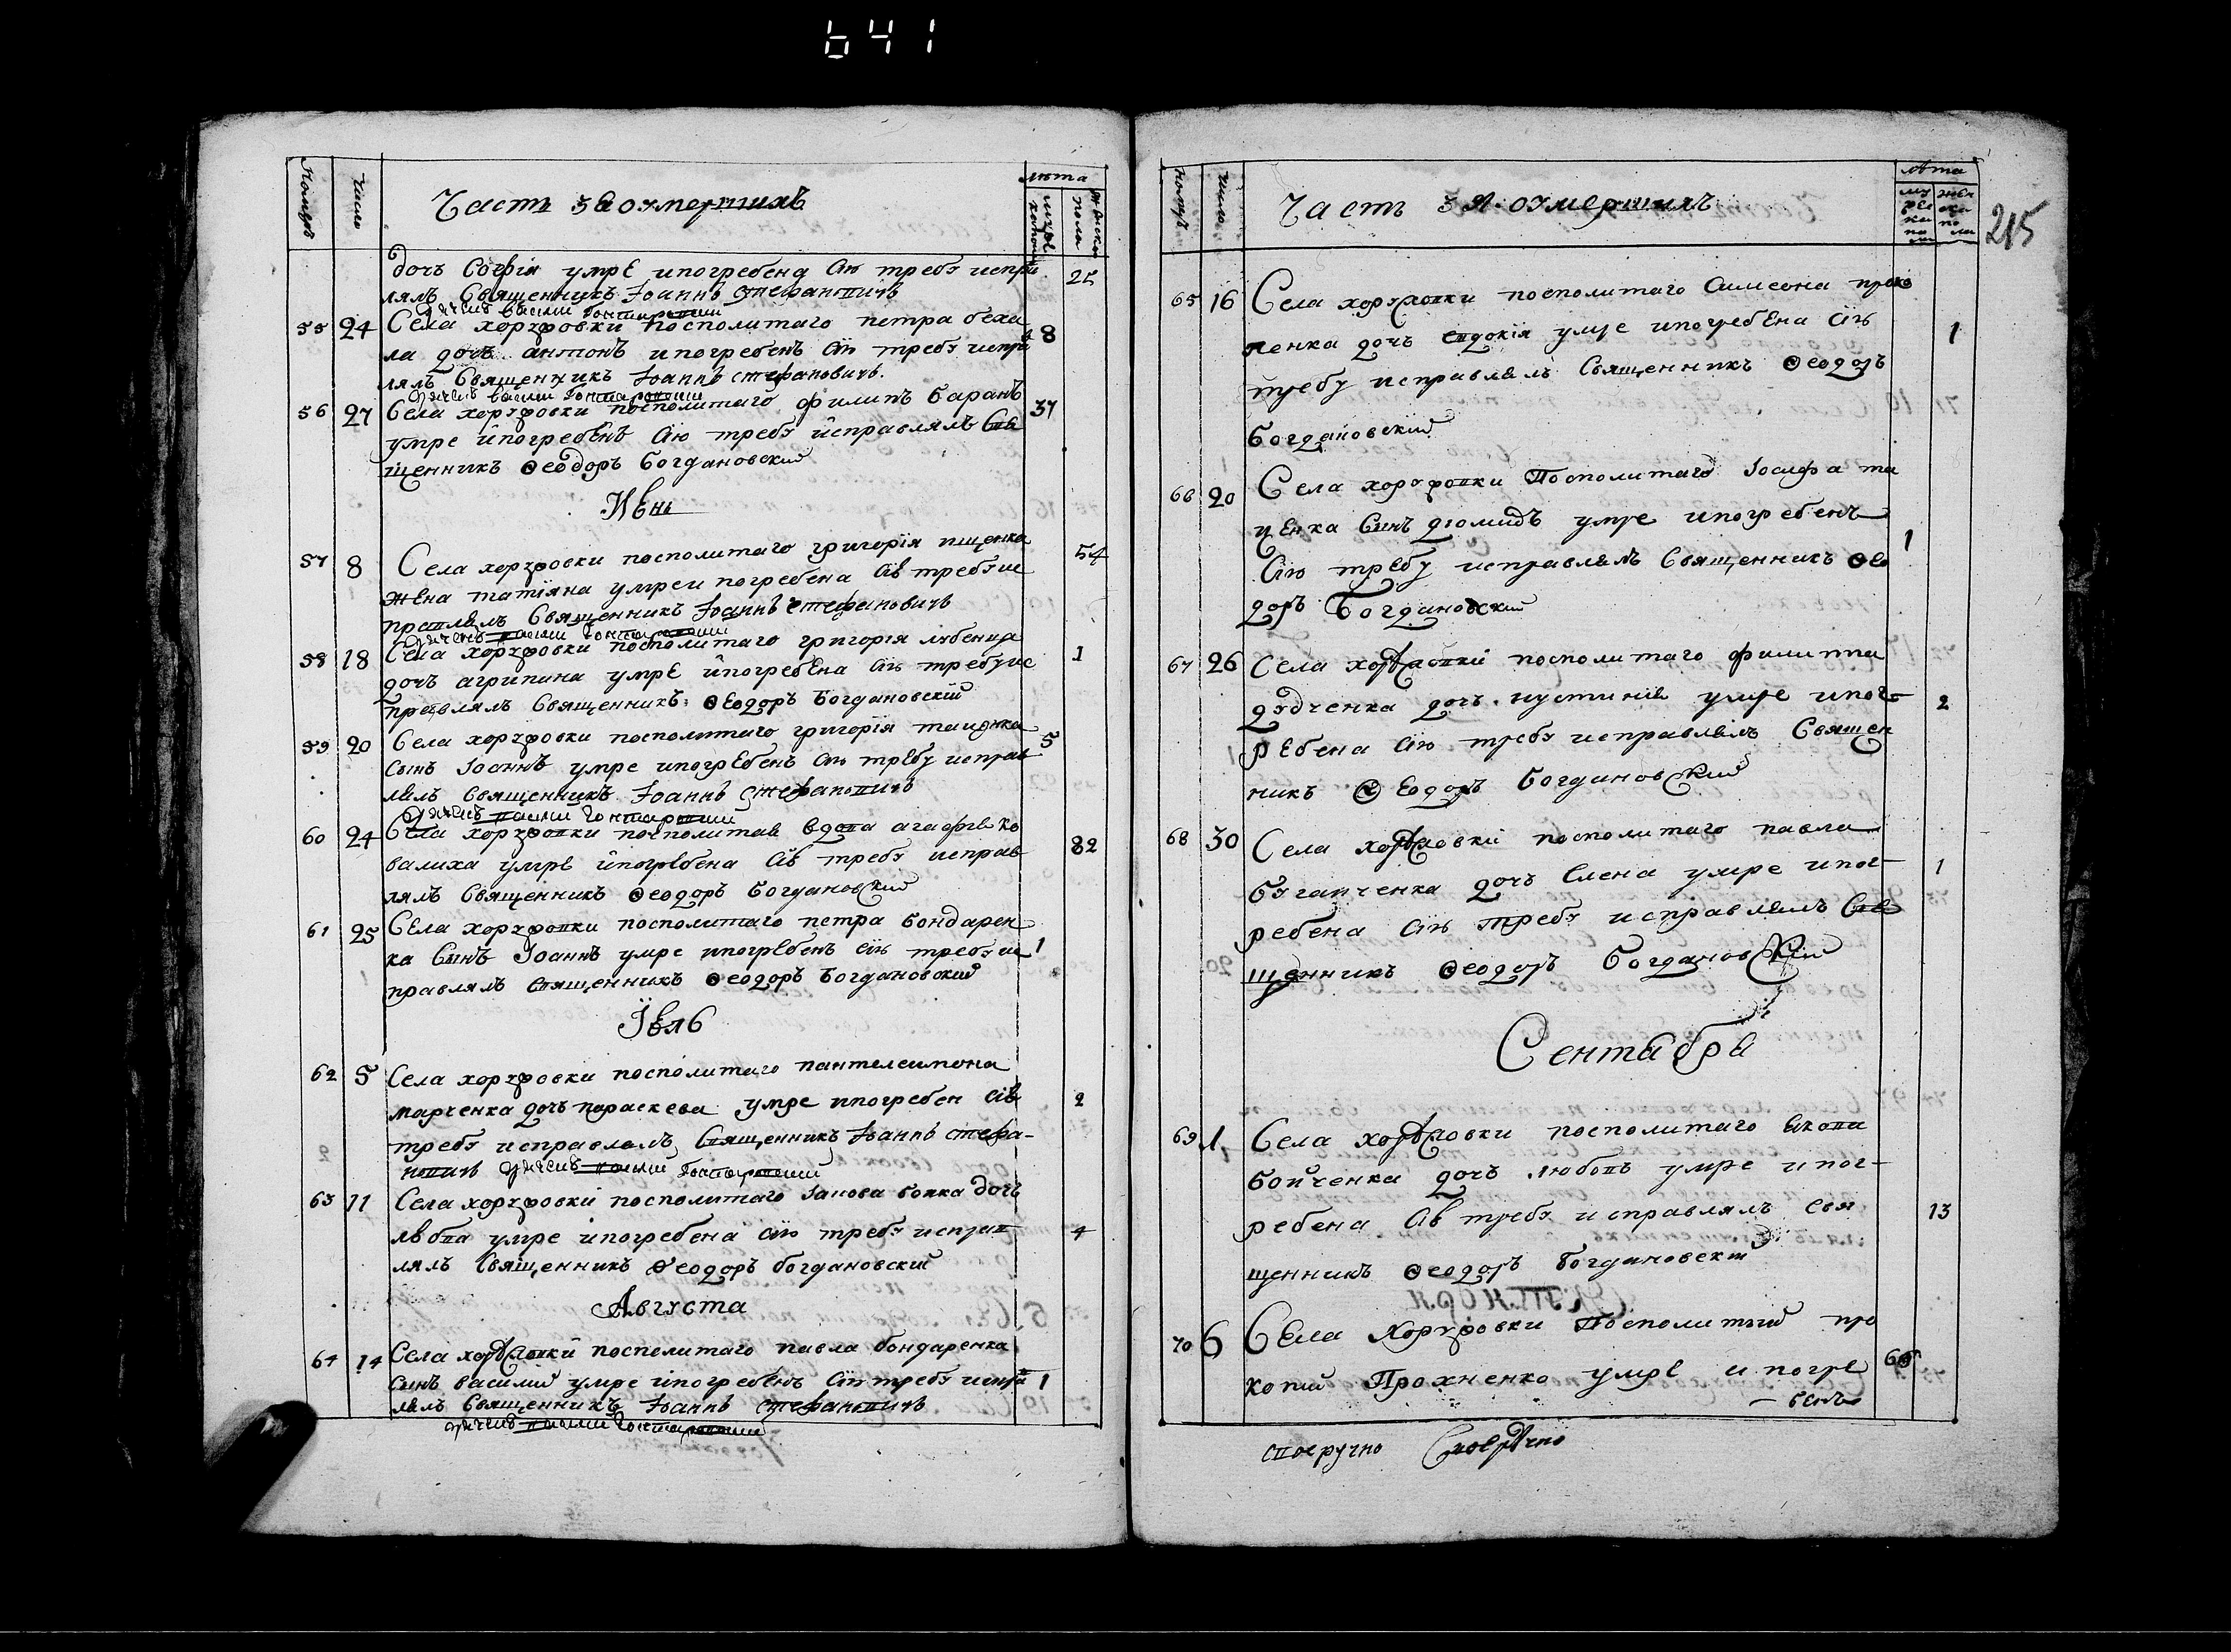 641
Номеръ
Число
Часть 3я оумершихъ
лѣта
мужеска пола
женска пола
дочъ Софія умре ипогребена сію требу испра
25
влялъ Священникъ Іоаннъ Стефановичъ
55 24 Села хоружовки посполитаго петра беха
8
ла дочъ антонъ ипогребенъ сію требу испра
влялъ Священникъ Іоаннъ Стефановичъ
56 27 Села хоружовки посполитаго филипъ баранъ
37
умре ипогребенъ сію требу исправлялъ Свя
щенникъ Ѳеодоръ Богдановский
Июнь
57 8 Села хоружовки посполитаго григорія ищенка
54
жена татіяна умре и погребена сію требу ис
правлялъ Священникъ Іоаннъ Стефановичъ
58 18 Села хоружовки посполитаго григорія любенца
1
дочъ агрипина умре ипогребена сію требу ис
правлялъ Священникъ Ѳеодоръ Богдановскій
59 20 Села хоружовки посполитаго григорія
5
Сынъ Іоаннъ умре ипогребенъ сію требу исправ
лялъ Священникъ Іоаннъ Стефановичъ
60 24 Села хоружовки посполитая вдова агафія ко
валиха умре ипогребена сію требу исправ
82
лялъ Священникъ Ѳеодоръ Богдановский
61 25 Села хоружовки посполитаго петра бондарен
ка Сынъ Іоаннъ умре ипогребенъ сію требу ис
1
правлялъ Священникъ Ѳеодоръ Богдановский
Іюль
62 5 Села хоружовки посполитаго пантелеимона
марченка дочъ параскева умре ипогребен сію
2
требу исправлялъ Священникъ Іоаннъ Стефа-
новичъ
63 11 Села хоружовки посполитаго Іакова бойка дочъ
любва умре ипогребена сію требу исправ
4
лялъ Священникъ Ѳеодоръ Богдановский
Августа
64 14 Села хоружовки посполитаго павла бондаренка
сынъ василий умре ипогребенъ сію требу испра
1
влялъ Священникъ Іоаннъ Стефановичъ
номеръ
число
Часть 3я оумершихъ
лѣта
мужеска пола
женска пола
215
65 16 Села хоружовки посполитаго Симеона проко
пенка дочъ евдокія умре ипогребена сію
1
требу исправлялъ Священникъ Ѳеодоръ
Богдановский
66 20 Села хоружовки Посполитаго Іосифа та
ценка Синъ диомидъ умре ипогребенъ
1
Сію требу исправлялъ Священникъ Ѳео
доръ Богдановский
67 26 Села хоружовки посполитаго филиппа
дудченка дочъ иустинія умре ипог-
2
ребена сію требу исправлялъ Священ
никъ Ѳеодоръ Богдановский
68 30 Села хоружовки посполитаго павла
дочъ Елена умре ипог-
1
ребена сію требу исправлялъ Свя
щенникъ Ѳеодоръ Богдановский
Сентября
69 1 Села хоружовки посполитаго Якова
бойченка дочъ любовъ умре ипог-
ребена сію требу исправлялъ Свя
13
щенникъ Ѳеодоръ Богдановский
70 6 Села Хоружовки Посполитый про
копий Прохненко умре и погре
бенъ
своеручно Своеручно